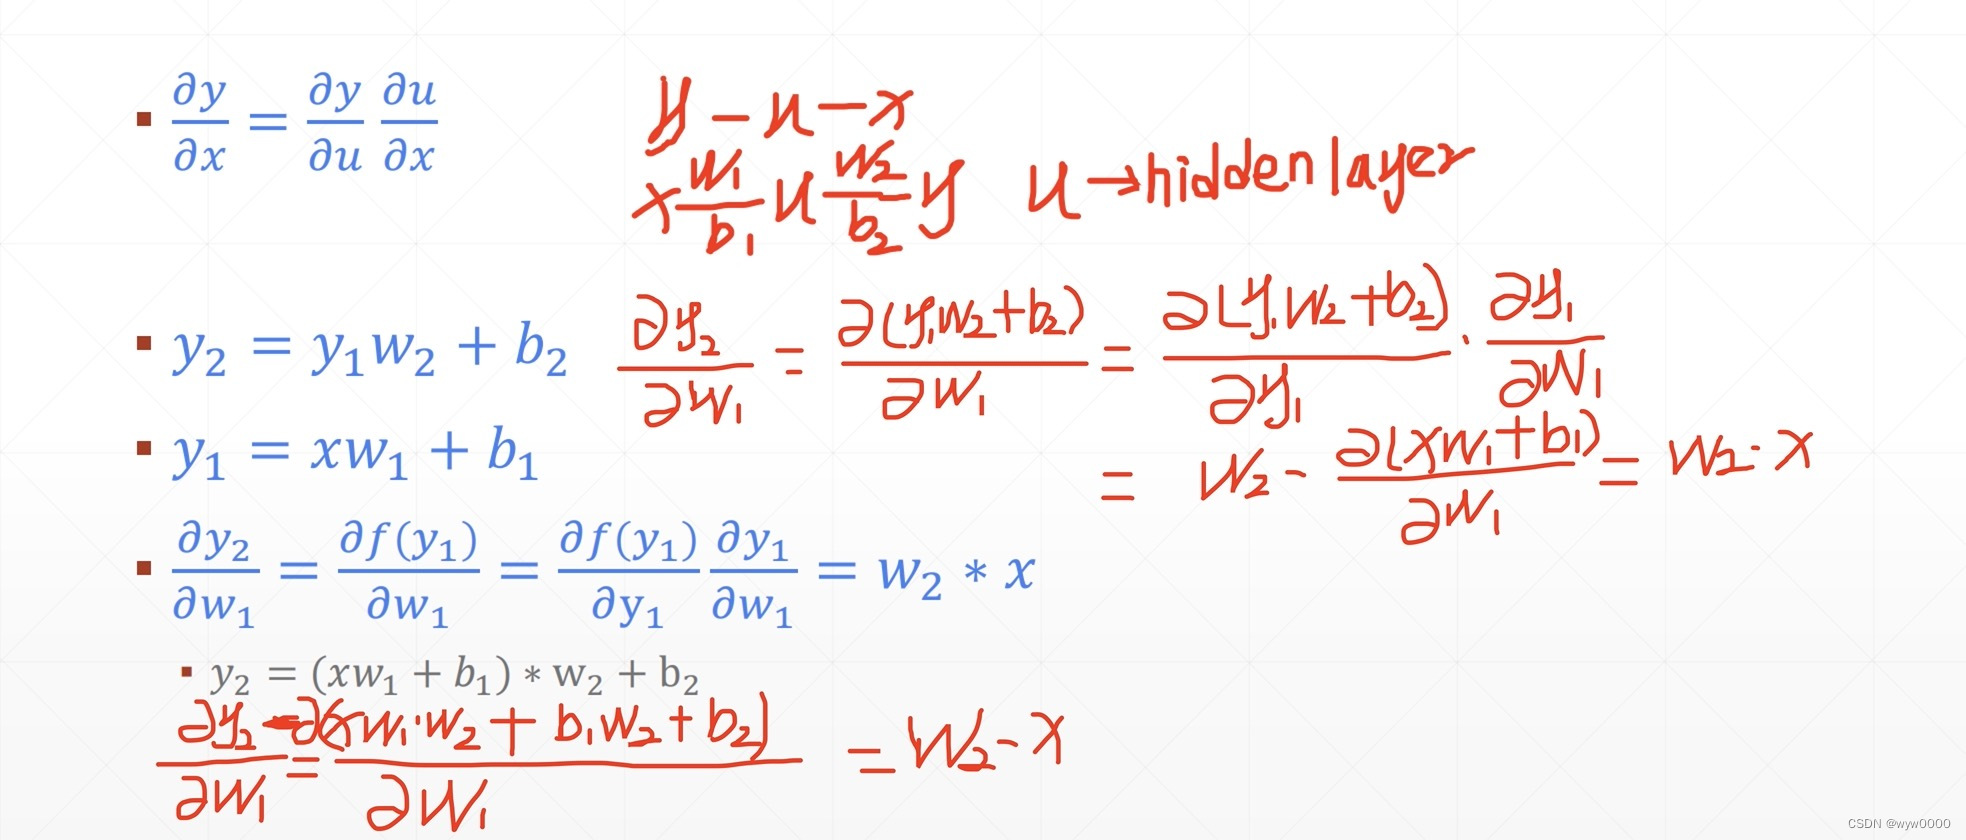 ∂y/∂x = ∂y/∂u ∂u/∂x
y - u - x
x w₁/b₁ u w₂/b₂ y u → hidden layer
y₂ = y₁w₂ + b₂
∂y₂/∂w₁ = ∂(y₁w₂+b₂)/∂w₁ = ∂(y₁w₂+b₂)/∂y₁ · ∂y₁/∂w₁
y₁ = xw₁ + b₁
= w₂ - ∂(xw₁+b₁)/∂w₁ = w₂ - x
∂y₂/∂w₁ = ∂f(y₁)/∂w₁ = ∂f(y₁)/∂y₁ ∂y₁/∂w₁ = w₂ * x
y₂ = (xw₁ + b₁) * w₂ + b₂
∂y₂/∂w₁ = ∂(xw₁·w₂ + b₁w₂ + b₂)/∂w₁ = w₂ - x
CSDN @wyw0000